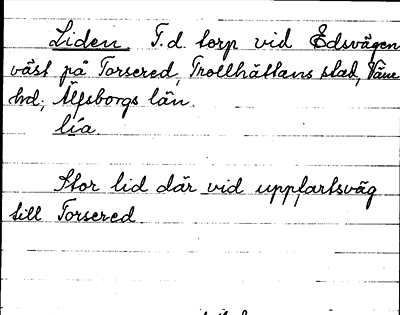 Liden. T.d. torp vid Edsvägen
väst på Torsered, Trollhättans stad, Väne
hd, Älfsborgs län.
lía.
Stor lid där vid uppfartsväg
till Torsered.